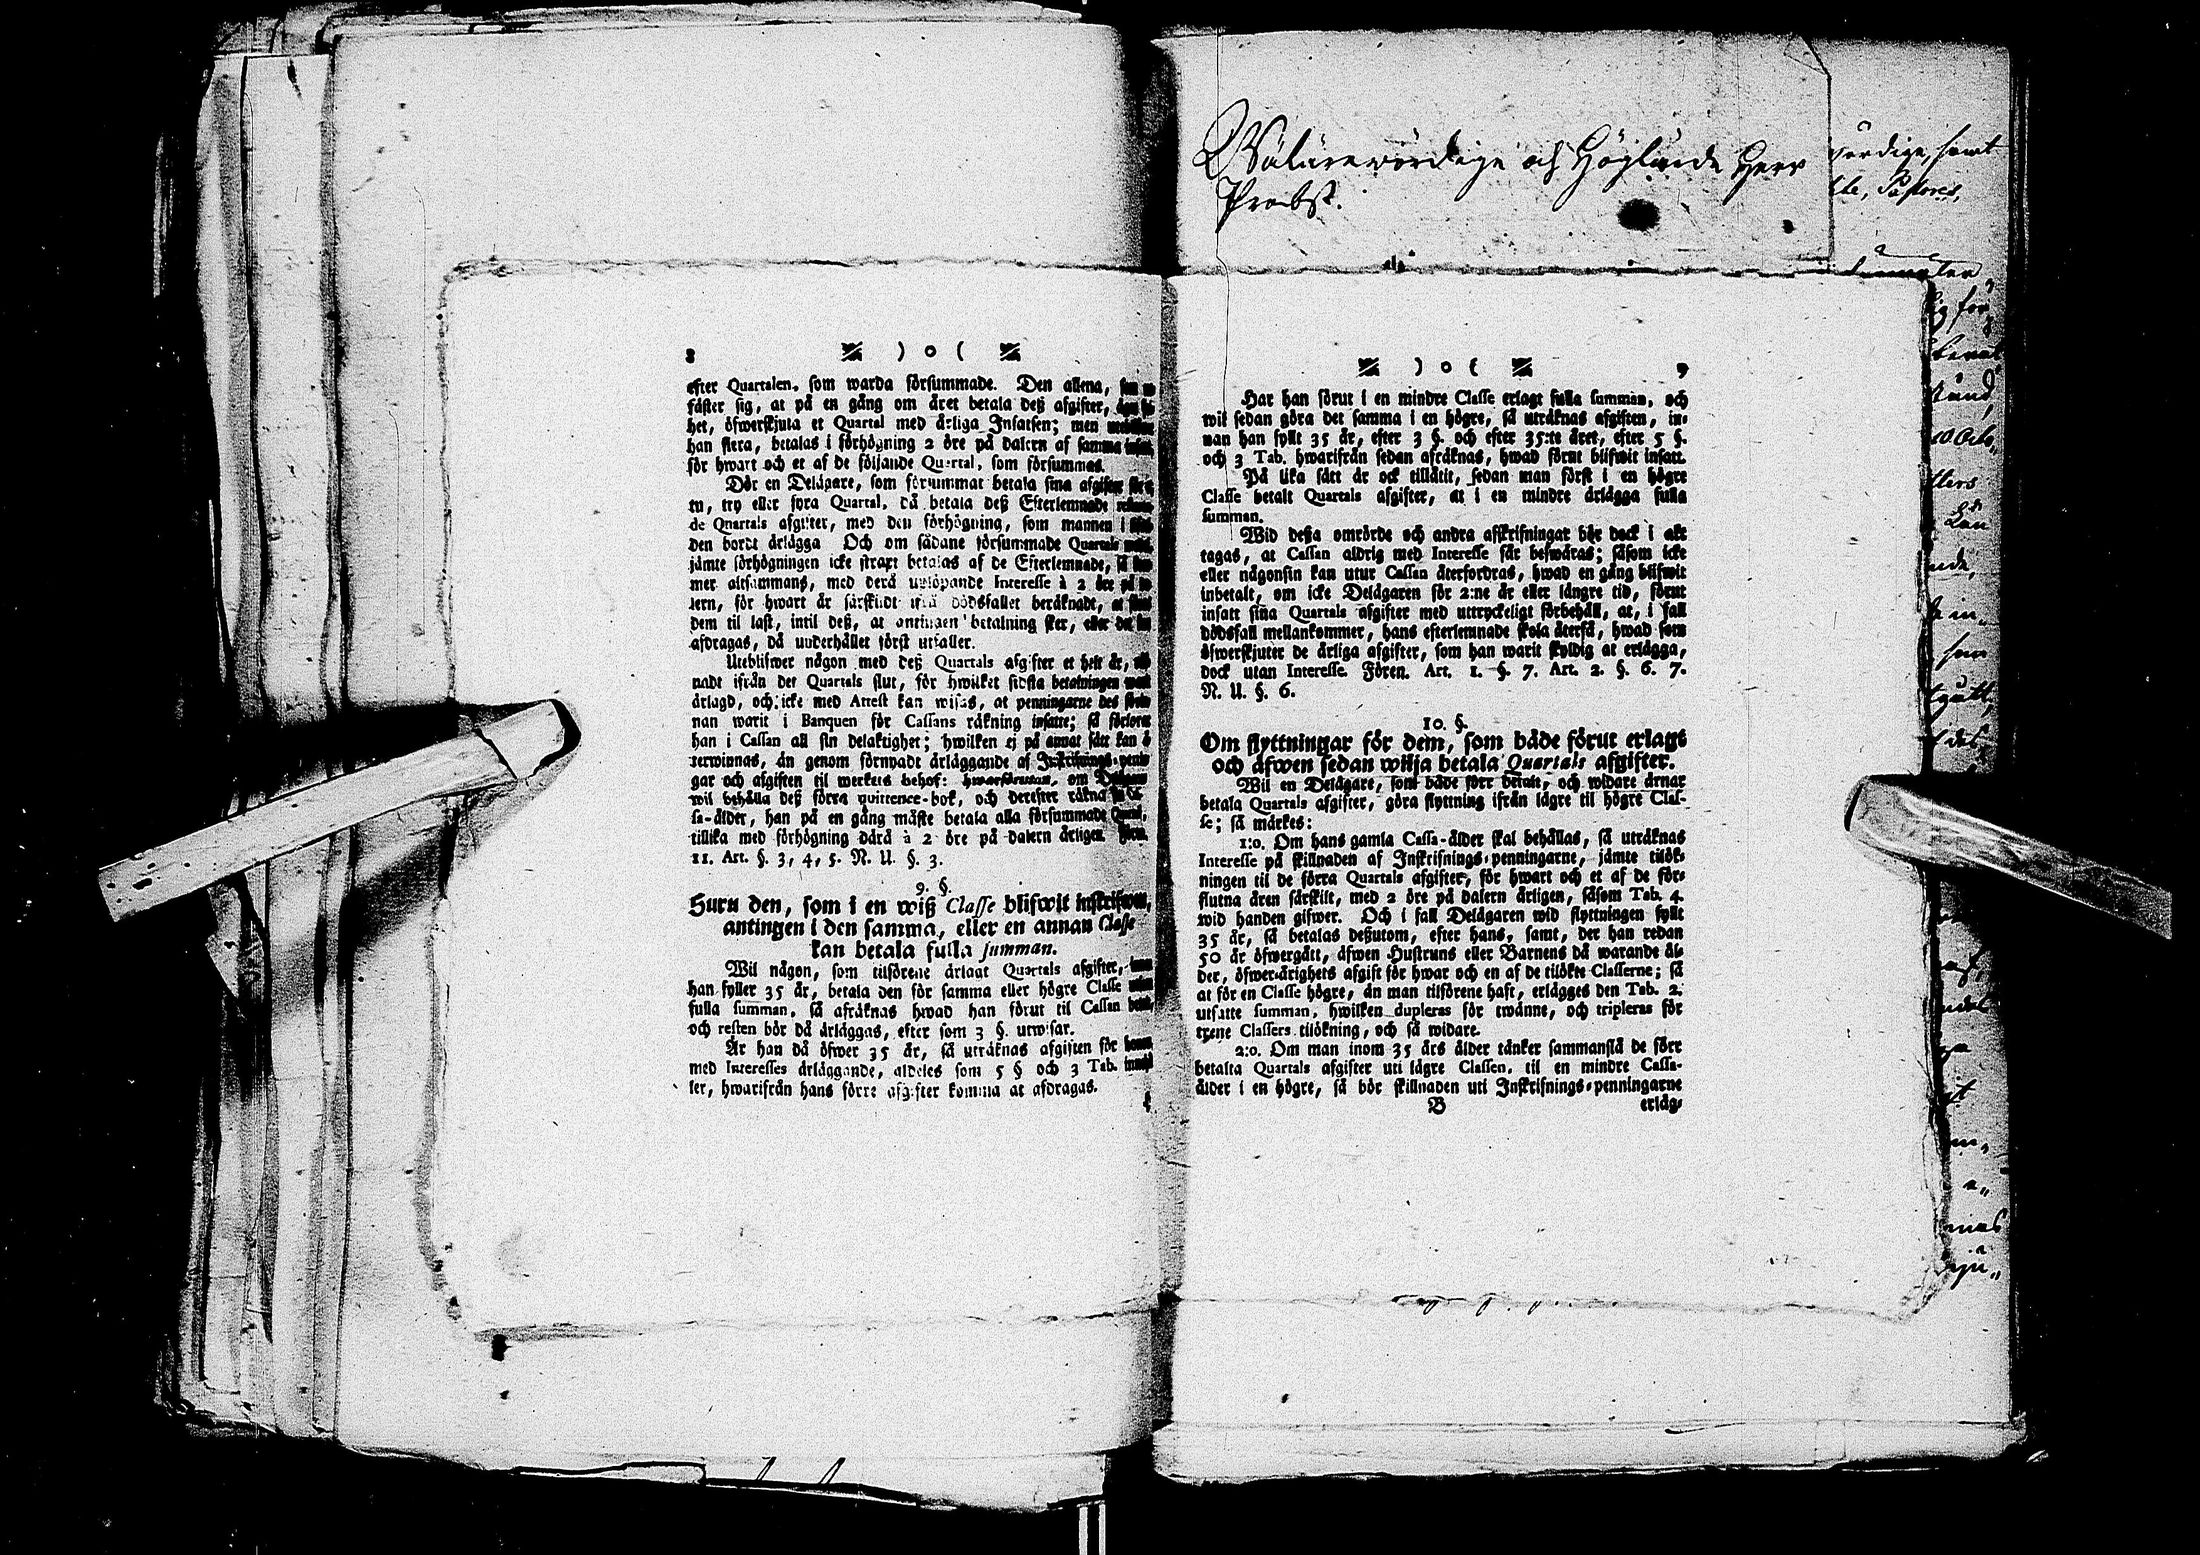 Wälärewördige och Höglärde Herr
Probst.
wördige, samt
Pastores,
8 ) o (
efter Quartalen, som warda försummade. Den allena, som
fäster sig, at på en gång om året betala deß afgifter,
het, öfwerskjuta et Quartal med årliga Insatsen; men
han flera, betalas i förhögning 2 öre på dalern af samma
för hwart och et af de följande Quartal, som försummas.
Dör en Delägare, som försummat betala sina afgifter för
tu, try eller fyra Quartal, då betala deß Efterlemnade
de Quartals afgifter, med den förhögning, som mannen i
den bordt ärlägga Och om sådane försummade Quartals
jämte förhögningen icke straxt betalas af de Efterlemnade, så
mer altsammans, med derå uplöpande Interesse à 2 öre på
lern, för hwart år särskildt ifrå dödsfallet beräknadt, at
dem til last, intil deß, at antingen betalning sker, eller det
afdragas, då underhållet först utfaller.
Uteblifwer någon med deß Quartals afgifter et helt år,
nadt ifrån det Quartals slut, för hwilket sidsta betalningen
ärlagd, och icke med Attest kan wisas, at penningarne des
nan warit i Banquen för Cassans räkning insatte; så förlorar
han i Cassan all sin delaktighet; hwilken ej på annat sätt kan å
terwinnas, än genom förnyadt ärläggande af Inskrifnings-penin
gar och afgiften til werkets behof: hwarförutan, om
wil behålla deß förra quittence-bok, och derefter räkna
sa-ålder, han på en gång måste betala alla försummade
tillika med förhögning därå à 2 öre på dalern årligen.
11. Art. §. 3, 4, 5. R. U. §. 3.
9. §.
Huru den, som i en wiß Classe blifwit inskrifwen,
antingen i den samma, eller en annan Classe
kan betala fulla summan.
Wil någon, som tilförene ärlagt Quartals afgifter,
han fyller 35 år, betala den för samma eller högre Classe
fulla summan, så afräknas hwad han förut til Cassan
och resten bör då ärläggas, efter som 3 §. utwisar.
Är han då öfwer 35 år, så uträknas afgiften för
med Interesses ärläggande, aldeles som 5 § och 3 Tab.
ler, hwarifrån hans förre afgifter komma at afdragas.
) o ( 9
Har han förut i en mindre Classe erlagt fulla summan, och
wil sedan göra det samma i en högre, så uträknas afgiften, in-
nan han fyllt 35 år, efter 3 §. och efter 35:te året, efter 5 §.
och 3 Tab. hwarifrån sedan afräknas, hwad förut blifwit insatt.
På lika sätt är ock tillåtit, sedan man först i en högre
Classe betalt Quartals afgifter, at i en mindre ärlägga fulla
summan.
Wid deßa omrörde och andra afskrifningar bör dock i akt
tagas, at Cassan aldrig med Interesse får beswäras; såsom icke
eller någonsin kan utur Cassan återfordras, hwad en gång blifwit
inbetalt, om icke Delägaren för 2:ne år eller längre tid, förut
insatt sina Quartals afgifter med uttryckeligt förbehåll, at, i fall
dödsfall mellankommer, hans efterlemnade skola återfå, hwad som
öfwerskjuter de årliga afgifter, som han warit skyldig at erlägga,
dock utan Interesse. Fören. Art. 1. §. 7. Art. 2. §. 6. 7.
R. U. §. 6.
10. §.
Om flyttningar för dem, som både förut erlagt
och äfwen sedan wilja betala Quartals afgifter.
Wil en Delägare, som både förr betalt, och widare ärnar
betala Quartals afgifter, göra flyttning ifrån lägre til högre Clas-
se; så märkes:
1:o. Om hans gamla Cassa-ålder skal behållas, så uträknas
Interesse på skillnaden af Inskrifnings-penningarne, jämte tilök-
ningen til de förra Quartals afgifter, för hwart och et af de för-
flutna åren särskilt, med 2 öre på dalern årligen, såsom Tab. 4.
wid handen gifwer. Och i fall Delägaren wid flyttningen fyllt
35 år, så betalas deßutom, efter hans, samt, der han redan
50 år öfwergått, äfwen Hustruns eller Barnens då warande ål-
der, öfwer-årighets afgift för hwar och en af de tilökte Classerne; så
at för en Classe högre, än man tilförene haft, erlägges den Tab. 2.
utsatte summan, hwilken dupleras för twänne, och tripleras för
trene Classers tilökning, och så widare.
2:o. Om man inom 35 års ålder tänker sammanslå de förr
betalta Quartals afgifter uti lägre Classen, til en mindre Cassa-
ålder i en högre, så bör skillnaden uti Inskrifnings-penningarne
B erläg-